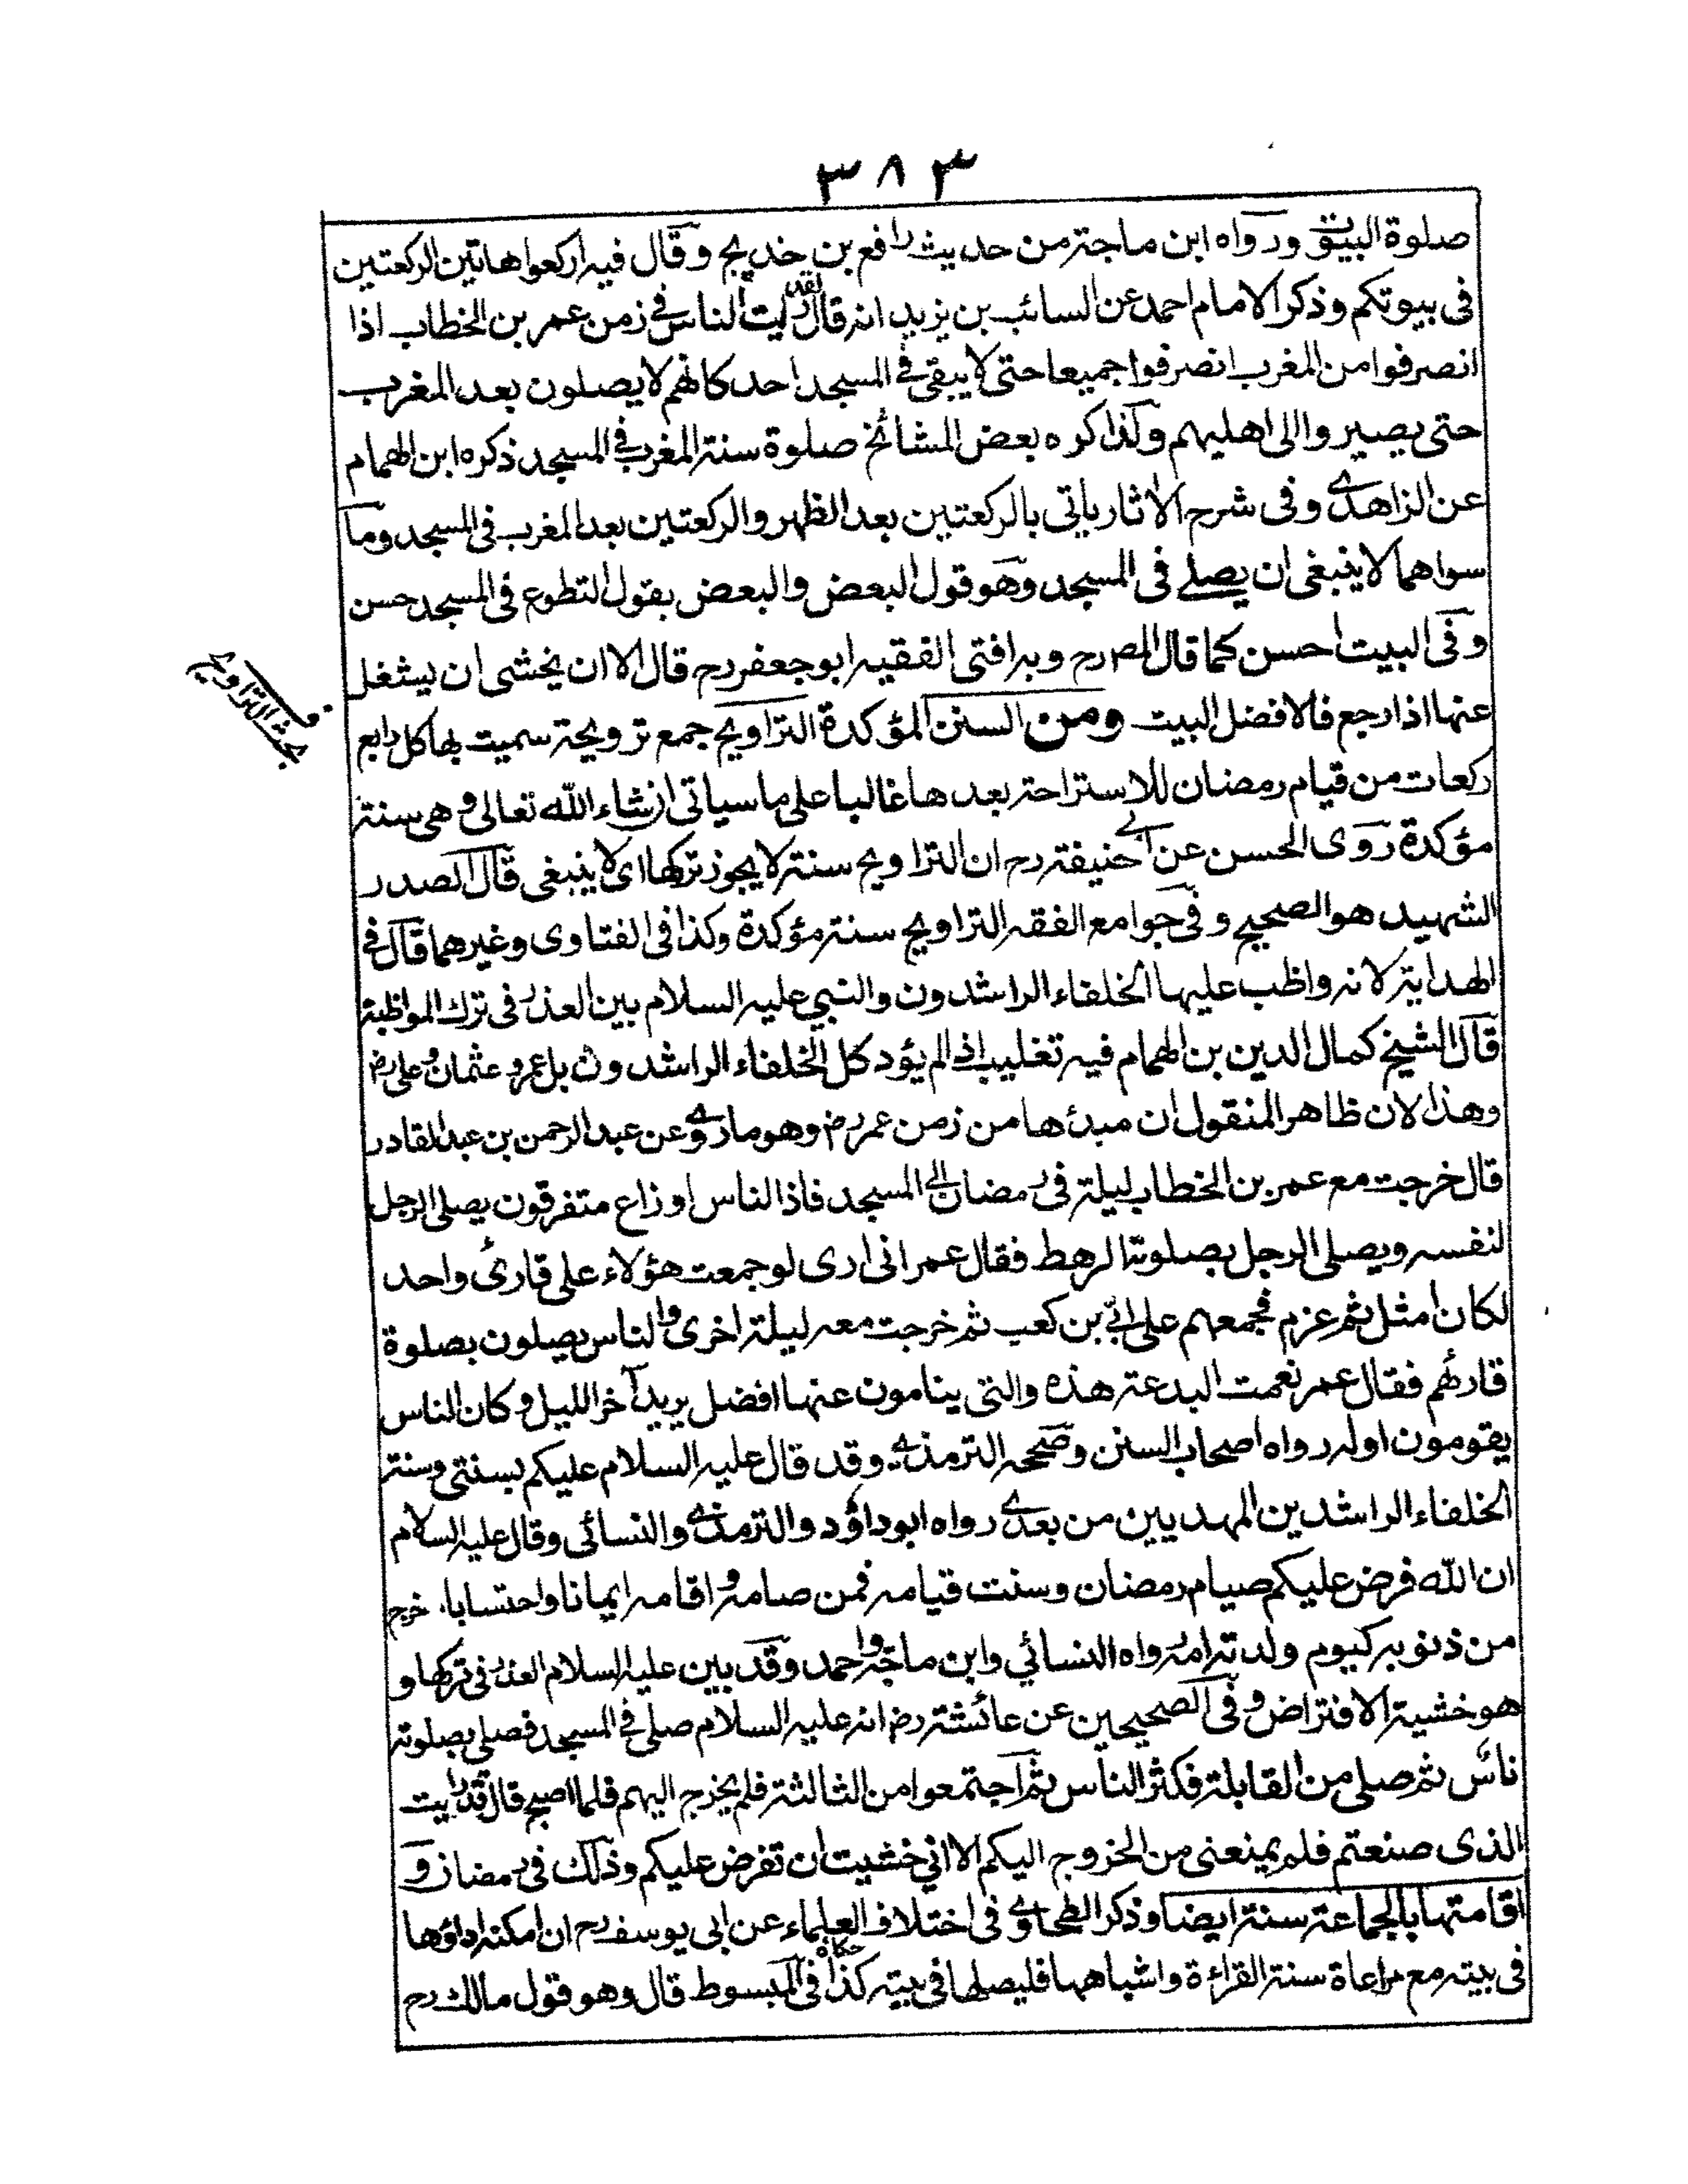 ٣٨٣
صلوة البيوت ورواه ابن ماجة من حديث رافع بن خديج وقال فيه اركعوا هاتين الركعتين
فى بيوتكم وذكر الامام احمد عن السائب بن يزيد انه قال لقد رأيت الناس فى زمن عمر بن الخطاب اذا
انصرفوا من المغرب انصرفوا جميعا حتى لا يبقى فى المسجد احد كانهم لا يصلون بعد المغرب
حتى يصيروا الى اهليهم وكذا كره بعض المشائخ صلوة سنة المغرب فى المسجد ذكره ابن الهمام
عن الزاهدى وفى شرح الاثار ياتى بالركعتين بعد الظهر والركعتين بعد المغرب فى المسجد وما
سواهما لا ينبغى ان يصلے فى المسجد وهو قول البعض والبعض يقول التطوع فى المسجد حسن
وفى البيت احسن كما قال المص رح وبه افتى الفقيه ابو جعفر رح قال الا ان يخشى ان يشغل
بحث التراويح
عنها اذا رجع فالافضل البيت ومن السنن المؤكدة التراويح جمع ترويحة سميت بها كل رابع
ركعات من قيام رمضان للاستراحة بعدها غالبا على ما سياتى ان شاء الله تعالى وهى سنة
مؤكدة روى الحسن عن ابى حنيفة رح ان التراويح سنة لا يجوز تركها اى لا ينبغى قال الصدر
الشهيد هو الصحيح وفى جوامع الفقه التراويح سنة مؤكدة وكذا فى الفتاوى وغيرهما قال فى
الهداية لانه واظب عليها الخلفاء الراشدون والنبي عليه السلام بين العذر فى ترك المواظبة
قال الشيخ كمال الدين بن الهمام فيه تغليب اذ لم يؤد كل الخلفاء الراشدون بل عمر وعثمان وعلى رض
وهذا لان ظاهر المنقول ان مبدئها من زمن عمر رض وهو ما روى عن عبد الرحمن بن عبد القادر
قال خرجت مع عمر بن الخطاب ليلة فى رمضان الى المسجد فاذا الناس اوزاع متفرقون يصلى الرجل
لنفسه ويصلى الرجل بصلوته الرهط فقال عمر انى ارى لو جمعت هؤلاء على قارئ واحد
لكان امثل ثم عزم فجمعهم على ابيّ بن كعب ثم خرجت معه ليلة اخرى والناس يصلون بصلوة
قارئهم فقال عمر نعمت البدعة هذه والتى ينامون عنها افضل يريد آخر الليل وكان الناس
يقومون اوله رواه اصحاب السنن وصححه الترمذى وقد قال عليه السلام عليكم بسنتى وسنة
الخلفاء الراشدين المهديين من بعدى رواه ابو داؤد والترمذى والنسائى وقال عليه السلام
ان الله فرض عليكم صيام رمضان وسنت قيامه فمن صامه واقامه ايمانا واحتسابا خرج
من ذنوبه كيوم ولدته امه رواه النسائي وابن ماجة واحمد وقد بين عليه السلام العذر فى تركها و
هو خشية الافتراض وفى الصحيحين عن عائشة رض انه عليه السلام صلى فى المسجد فصلى بصلوته
ناس ثم صلى من القابلة فكثر الناس ثم اجتمعوا من الثالثة فلم يخرج اليهم فلما اصبح قال قد رأيت
الذى صنعتم فلم يمنعنى من الخروج اليكم الا اني خشيت ان تفرض عليكم وذلك فى رمضان و
اقامتها بالجماعة سنة ايضا وذكر الطحاوى فى اختلاف العلماء عن ابى يوسف رح ان امكنه اداؤها
فى بيته مع مراعاة سنة القراءة واشباهها فليصلها فى بيته كذا حكاه فى المبسوط قال وهو قول مالك رح